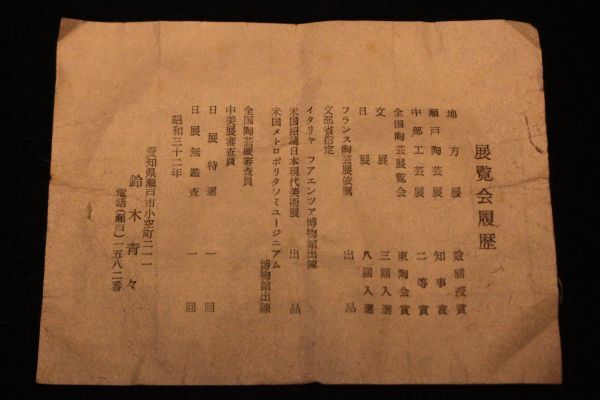 展覧会履歴
地方展 数回授賞
瀬戸陶芸展 知事賞
中部工芸展 二等賞
全国陶芸展覧会 東陶会賞
文展 三回入選
日展 八回入選
フランス陶芸展依嘱 出品
文部省指定
イタリヤ フアエンツア博物館出陳
米国紹聘日本現代美術展 出品
米国メトロポリタソミユージニアム
博物館出陳
全国陶芸展審査員
中美展審査員
日展特選 一回
日展無鑑査 一回
昭和三十二年
愛知県瀬戸市小空町二一一
鈴木青々
電話(瀬戸)一五八二番